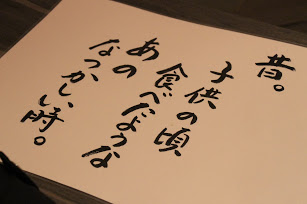 昔。
子供の頃
食べたような
あの
なつかしい、時。